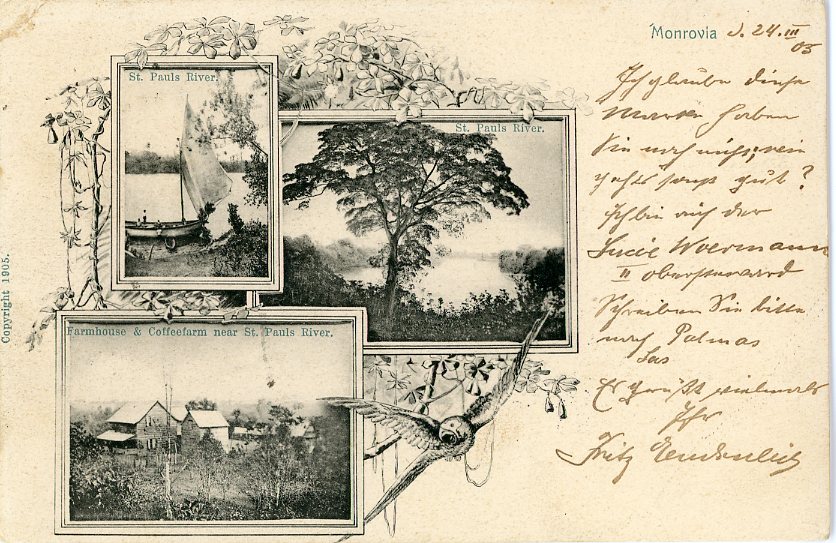 St. Pauls River.
St. Pauls River.
Farmhouse & Coffeefarm near St. Pauls River.
Copyright 1905.
Monrovia d. 24. III 05
Ich glaube diese
Marke haben
Sie noch nicht,
sonst gut?
Ich bin auf der
Lucie Woermann
II
Schreiben Sie bitte
nach Las Palmas
Es grüßt vielmals
Ihr
Fritz